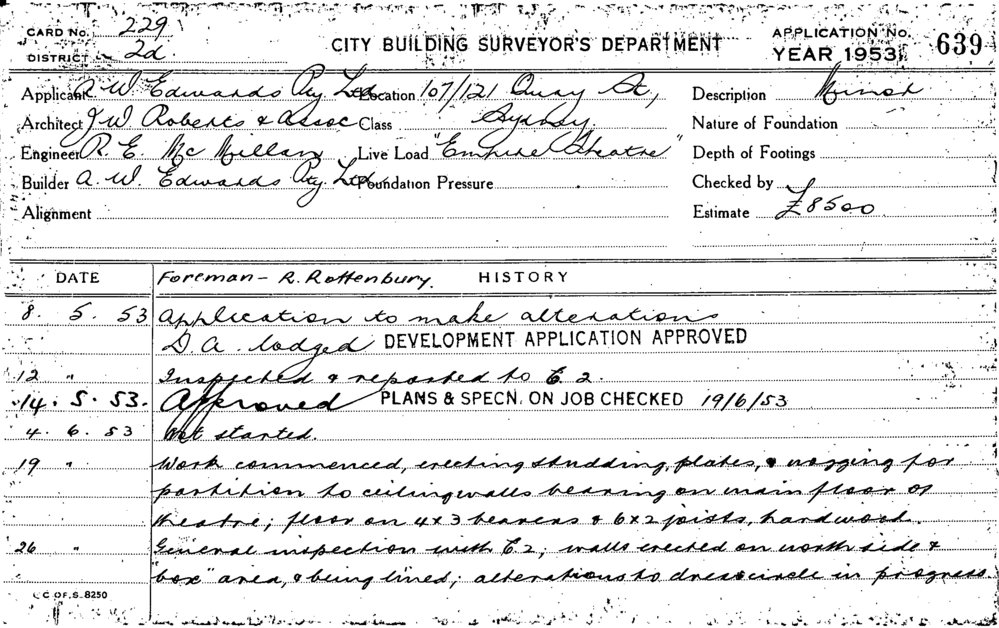 CARD No. 229
CITY BUILDING SURVEYOR'S DEPARTMENT
APPLICATION No. 639
DISTRICT 2d
YEAR 1953
Applicant A. W. Edwards Pty. Ltd. Location 107/121 Quay St, Description Minor
Architect J W Roberts & Assoc Class Sydney Nature of Foundation
Engineer R. E. Mc Millan Live Load "Empire Theatre" Depth of Footings
Builder A. W. Edwards Pty. Ltd Foundation Pressure Checked by
Alignment Estimate £8500
DATE Foreman - R. Rottenbury. HISTORY
8. 5. 53 Application to make alterations
D.A. lodged DEVELOPMENT APPLICATION APPROVED
12 " Inspected & reported to E.2.
14. 5. 53. Approved PLANS & SPECN. ON JOB CHECKED 19/6/53
4. 6. 53 Not started.
19 " Work commenced, erecting studding, plates, & nogging for
partition to ceiling walls bearing on main floor of
theatre; floor on 4x3 bearers & 6x2 joists, hardwood.
26 " General inspection with E.2; walls erected on north side &
"box" area, & being lined; alterations to dress circle in progress.
C. OF. S. 8250